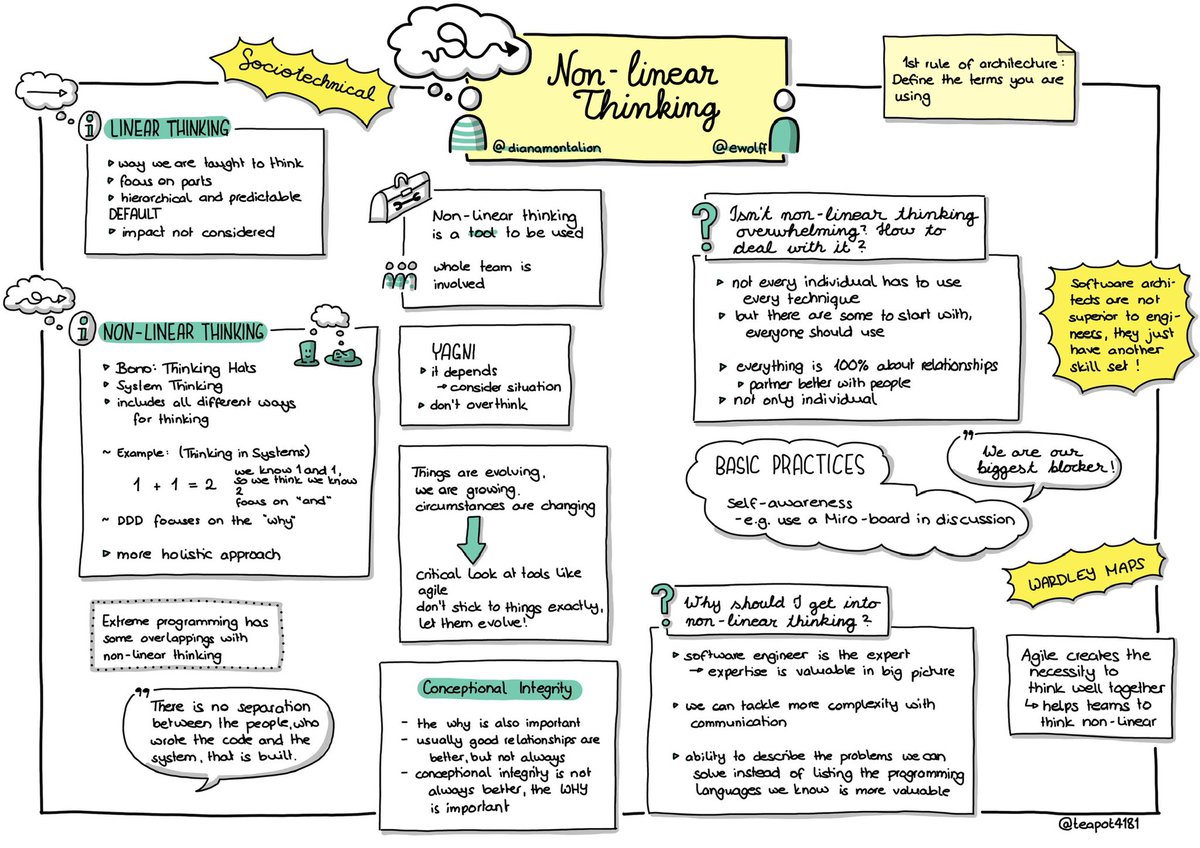 Sociotechnical
Non-linear
Thinking
@dianamontalion
@ewolff
1st rule of architecture:
Define the terms you are
using
i LINEAR THINKING
▹ way we are taught to think
▹ focus on parts
▹ hierarchical and predictable
DEFAULT
▹ impact not considered
i NON-LINEAR THINKING
▹ Bono: Thinking Hats
▹ System Thinking
▹ includes all different ways
for thinking
~ Example: (Thinking in Systems)
1 + 1 = 2
we know 1 and 1,
so we think we know
2
focus on "and"
~ DDD focuses on the "why"
▹ more holistic approach
Extreme programming has
some overlappings with
non-linear thinking
"There is no separation
between the people, who
wrote the code and the
system, that is built.
Non-Linear thinking
is a tool to be used
whole team is
involved
YAGNI
▹ it depends
→ consider situation
▹ don't overthink
Things are evolving,
we are growing.
circumstances are changing
critical look at tools like
agile
don't stick to things exactly,
let them evolve!
Conceptional Integrity
- the why is also important
- usually good relationships are
better, but not always
- conceptional integrity is not
always better, the WHY
is important
? Isn't non-linear thinking
overwhelming? How to
deal with it?
▹ not every individual has to use
every technique
▹ but there are some to start with,
everyone should use
▹ everything is 100% about relationships
▹ partner better with people
▹ not only individual
Software archi-
tects are not
superior to engi-
neers, they just
have another
skill set!
BASIC PRACTICES
Self-awareness
- e.g. use a Miro-board in discussion
"We are our
biggest blocker!
? Why should I get into
non-linear thinking?
▹ software engineer is the expert
→ expertise is valuable in big picture
▹ we can tackle more complexity with
communication
▹ ability to describe the problems we can
solve instead of listing the programming
languages we know is more valuable
WARDLEY MAPS
Agile creates the
necessity to
think well together
↳ helps teams to
think non-linear
@teapot4181